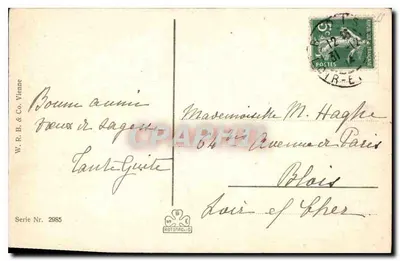 W. R. B. & Co. Vienne
Bonne année
vœux de sagesse
Tante
Serie Nr. 2985
5c
POSTES
Mademoiselle M. Haghe
64 Avenue de Paris
Blois
Loir et Cher